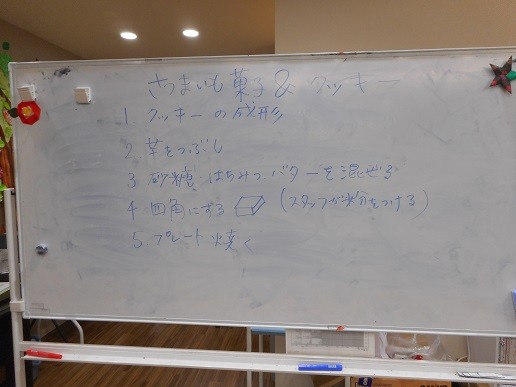 さつまいも菓子& クッキー
1 クッキーの成形
2 芋をつぶし
3 砂糖、はちみつ、バターを混ぜる
4 四角にする (スタッフが水分をつける)
5 プレート焼く